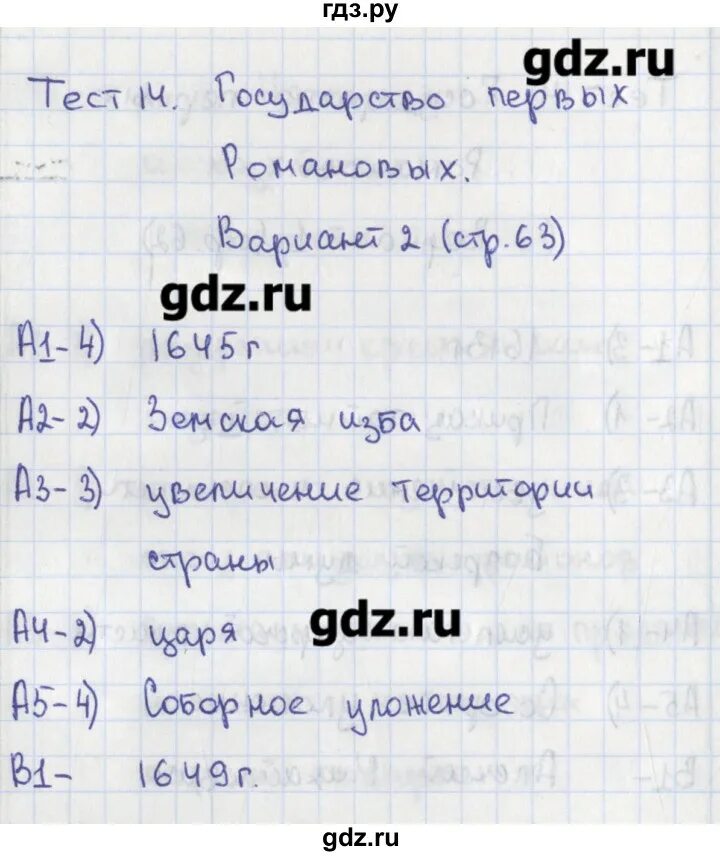 гдз.ру
gdz.ru
Тест 14. Государство первых
Романовых.
Вариант 2 (стр. 63)
gdz.ru
А1-4) 1645г
А2-2) Земская изба
А3-3) увеличение территории
страны
А4-2) царя
gdz.ru
А5-4) Соборное уложение
В1- 1649г.
gdz.ru